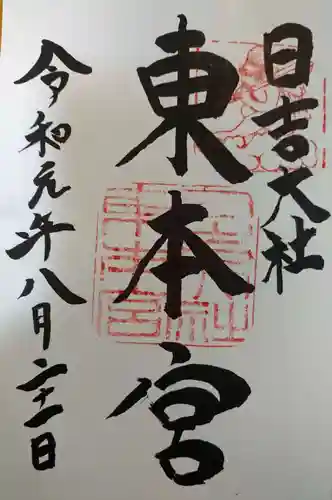 日吉大社
東本宮
令和元年八月二十一日